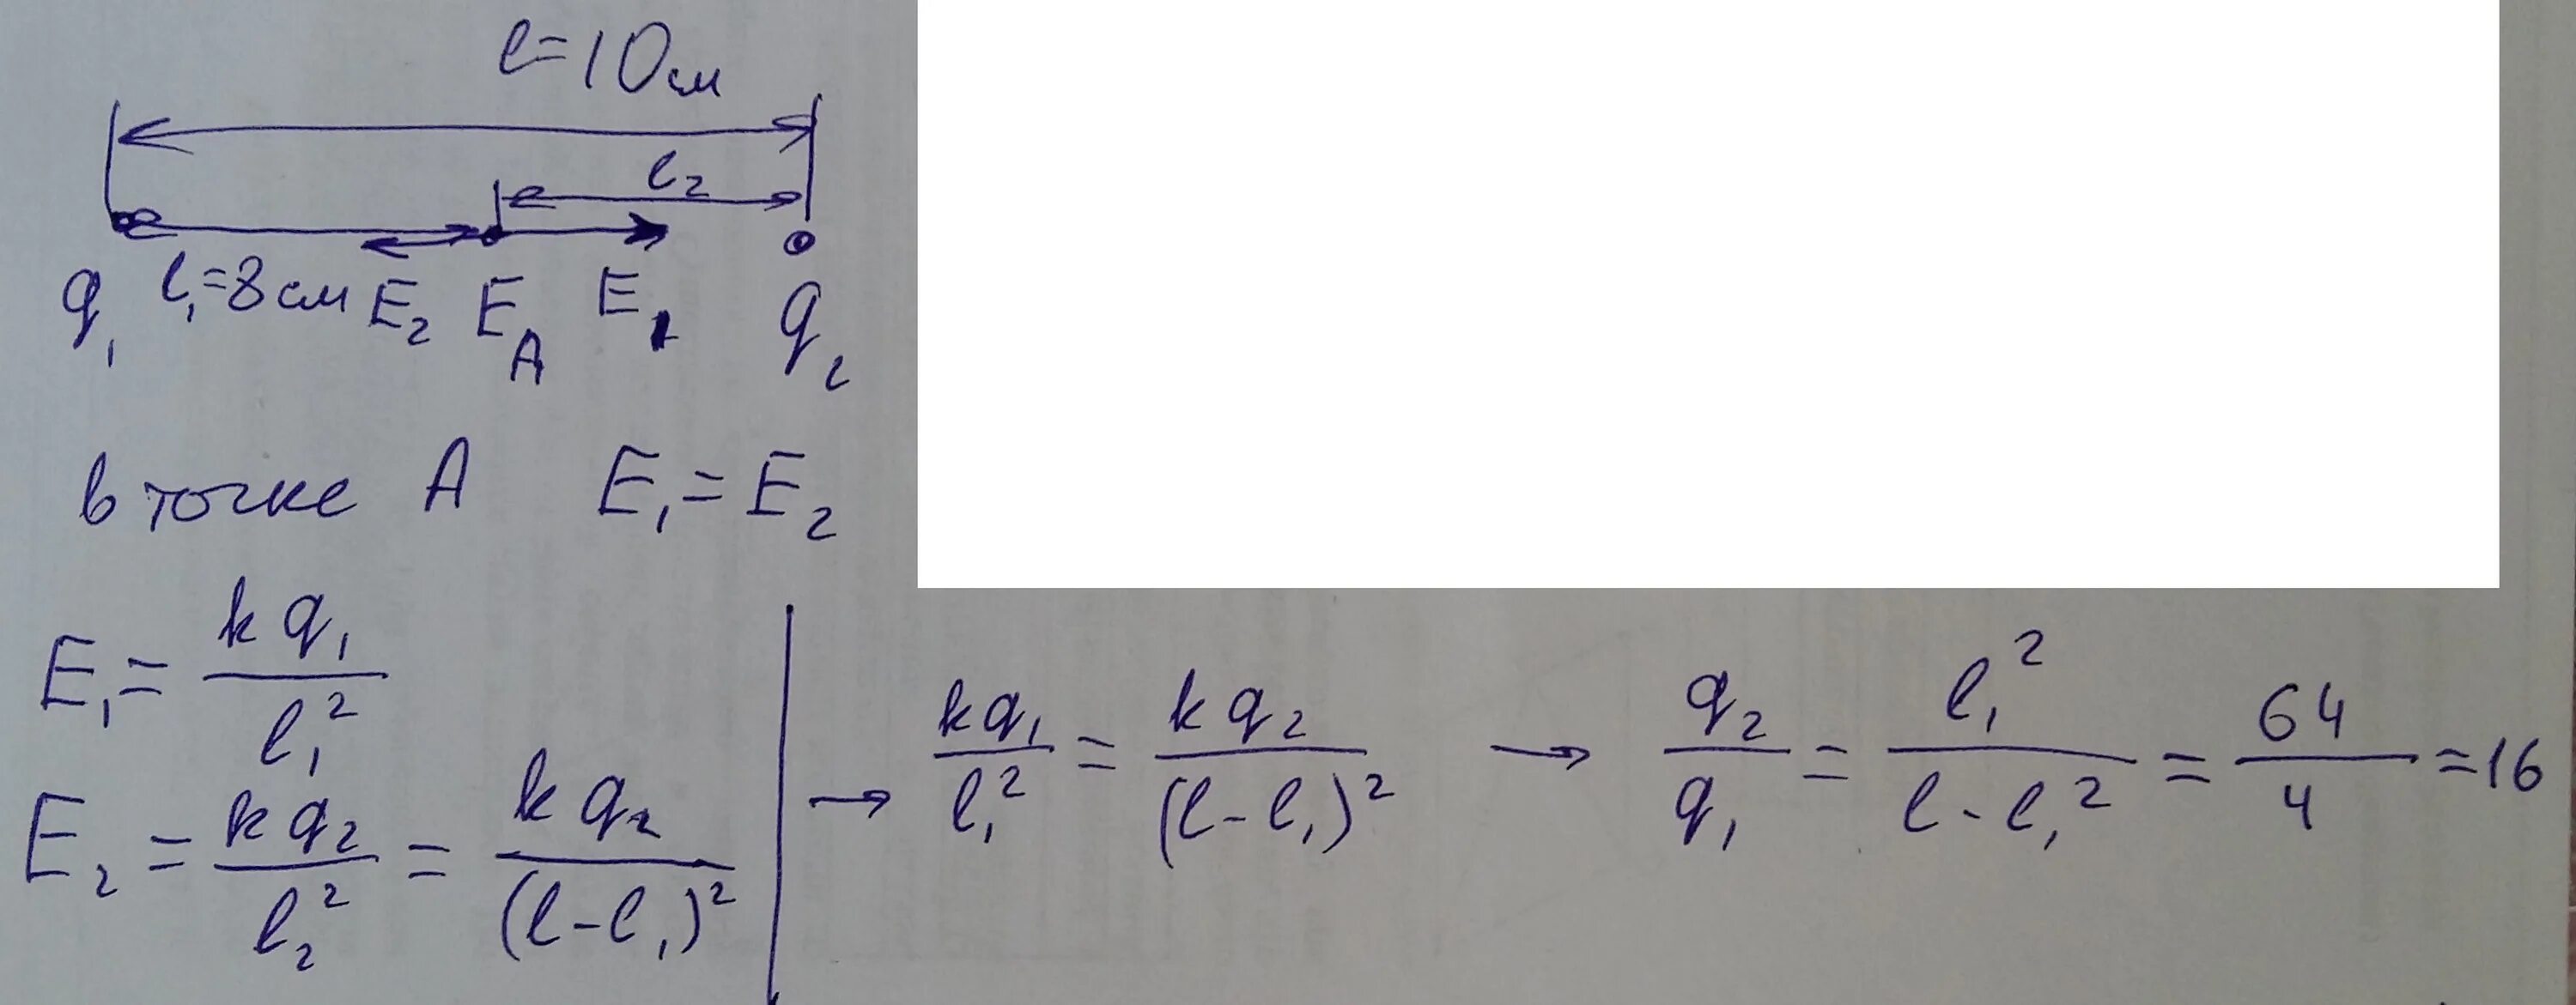 l=10см
l₂
q₁ l₁=8см E₂ E_A E₁ q₂
в точке A E₁=E₂
E₁= kq₁/l₁²
E₂ = kq₂/l₂² = kq₂/(l-l₁)²
→ kq₁/l₁² = kq₂/(l-l₁)² → q₂/q₁ = l₁²/l-l₁² = 64/4 =16